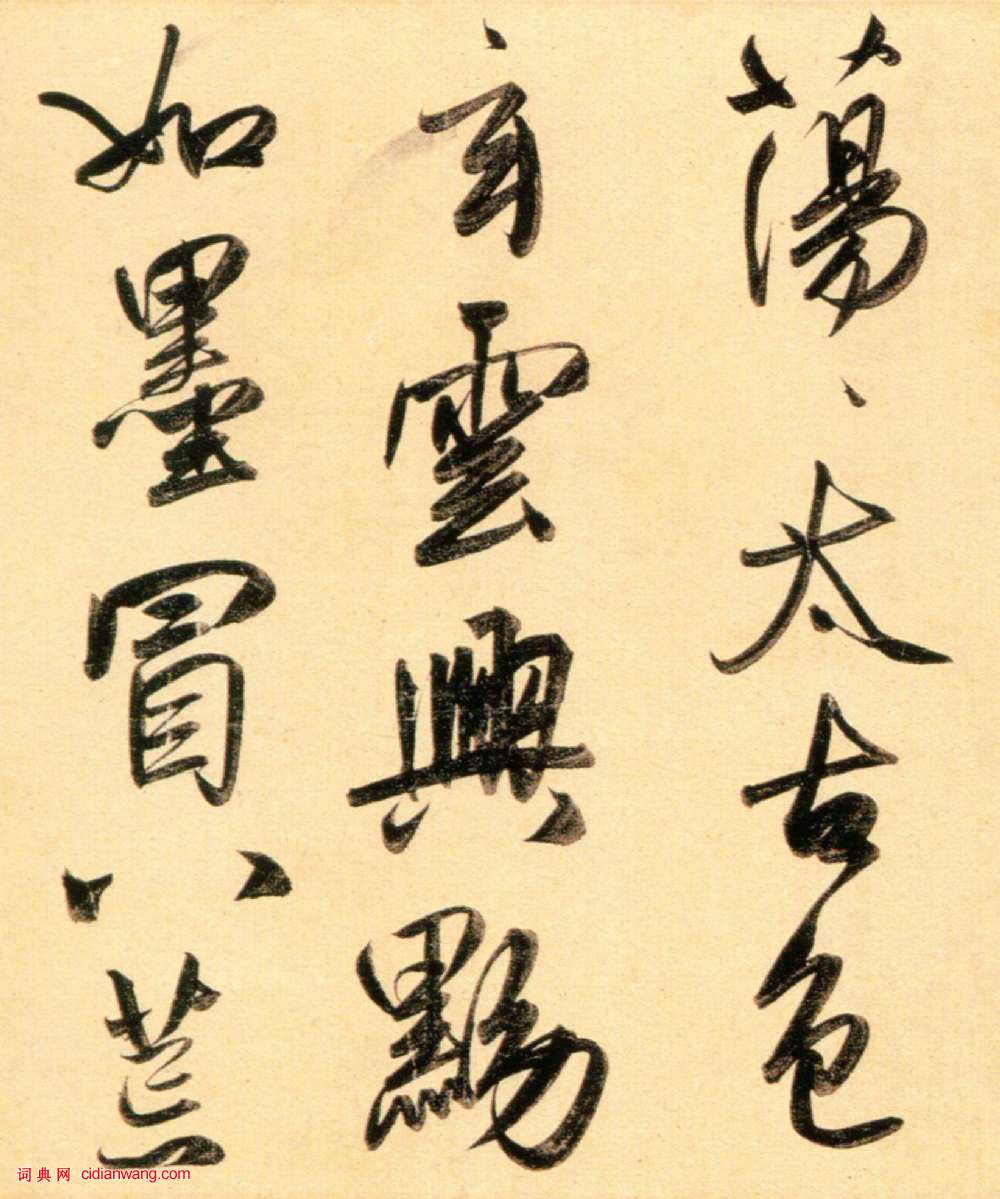 蕩、太古色
玄雲興黝
如墨冒八荒
词典网 cidianwang.com